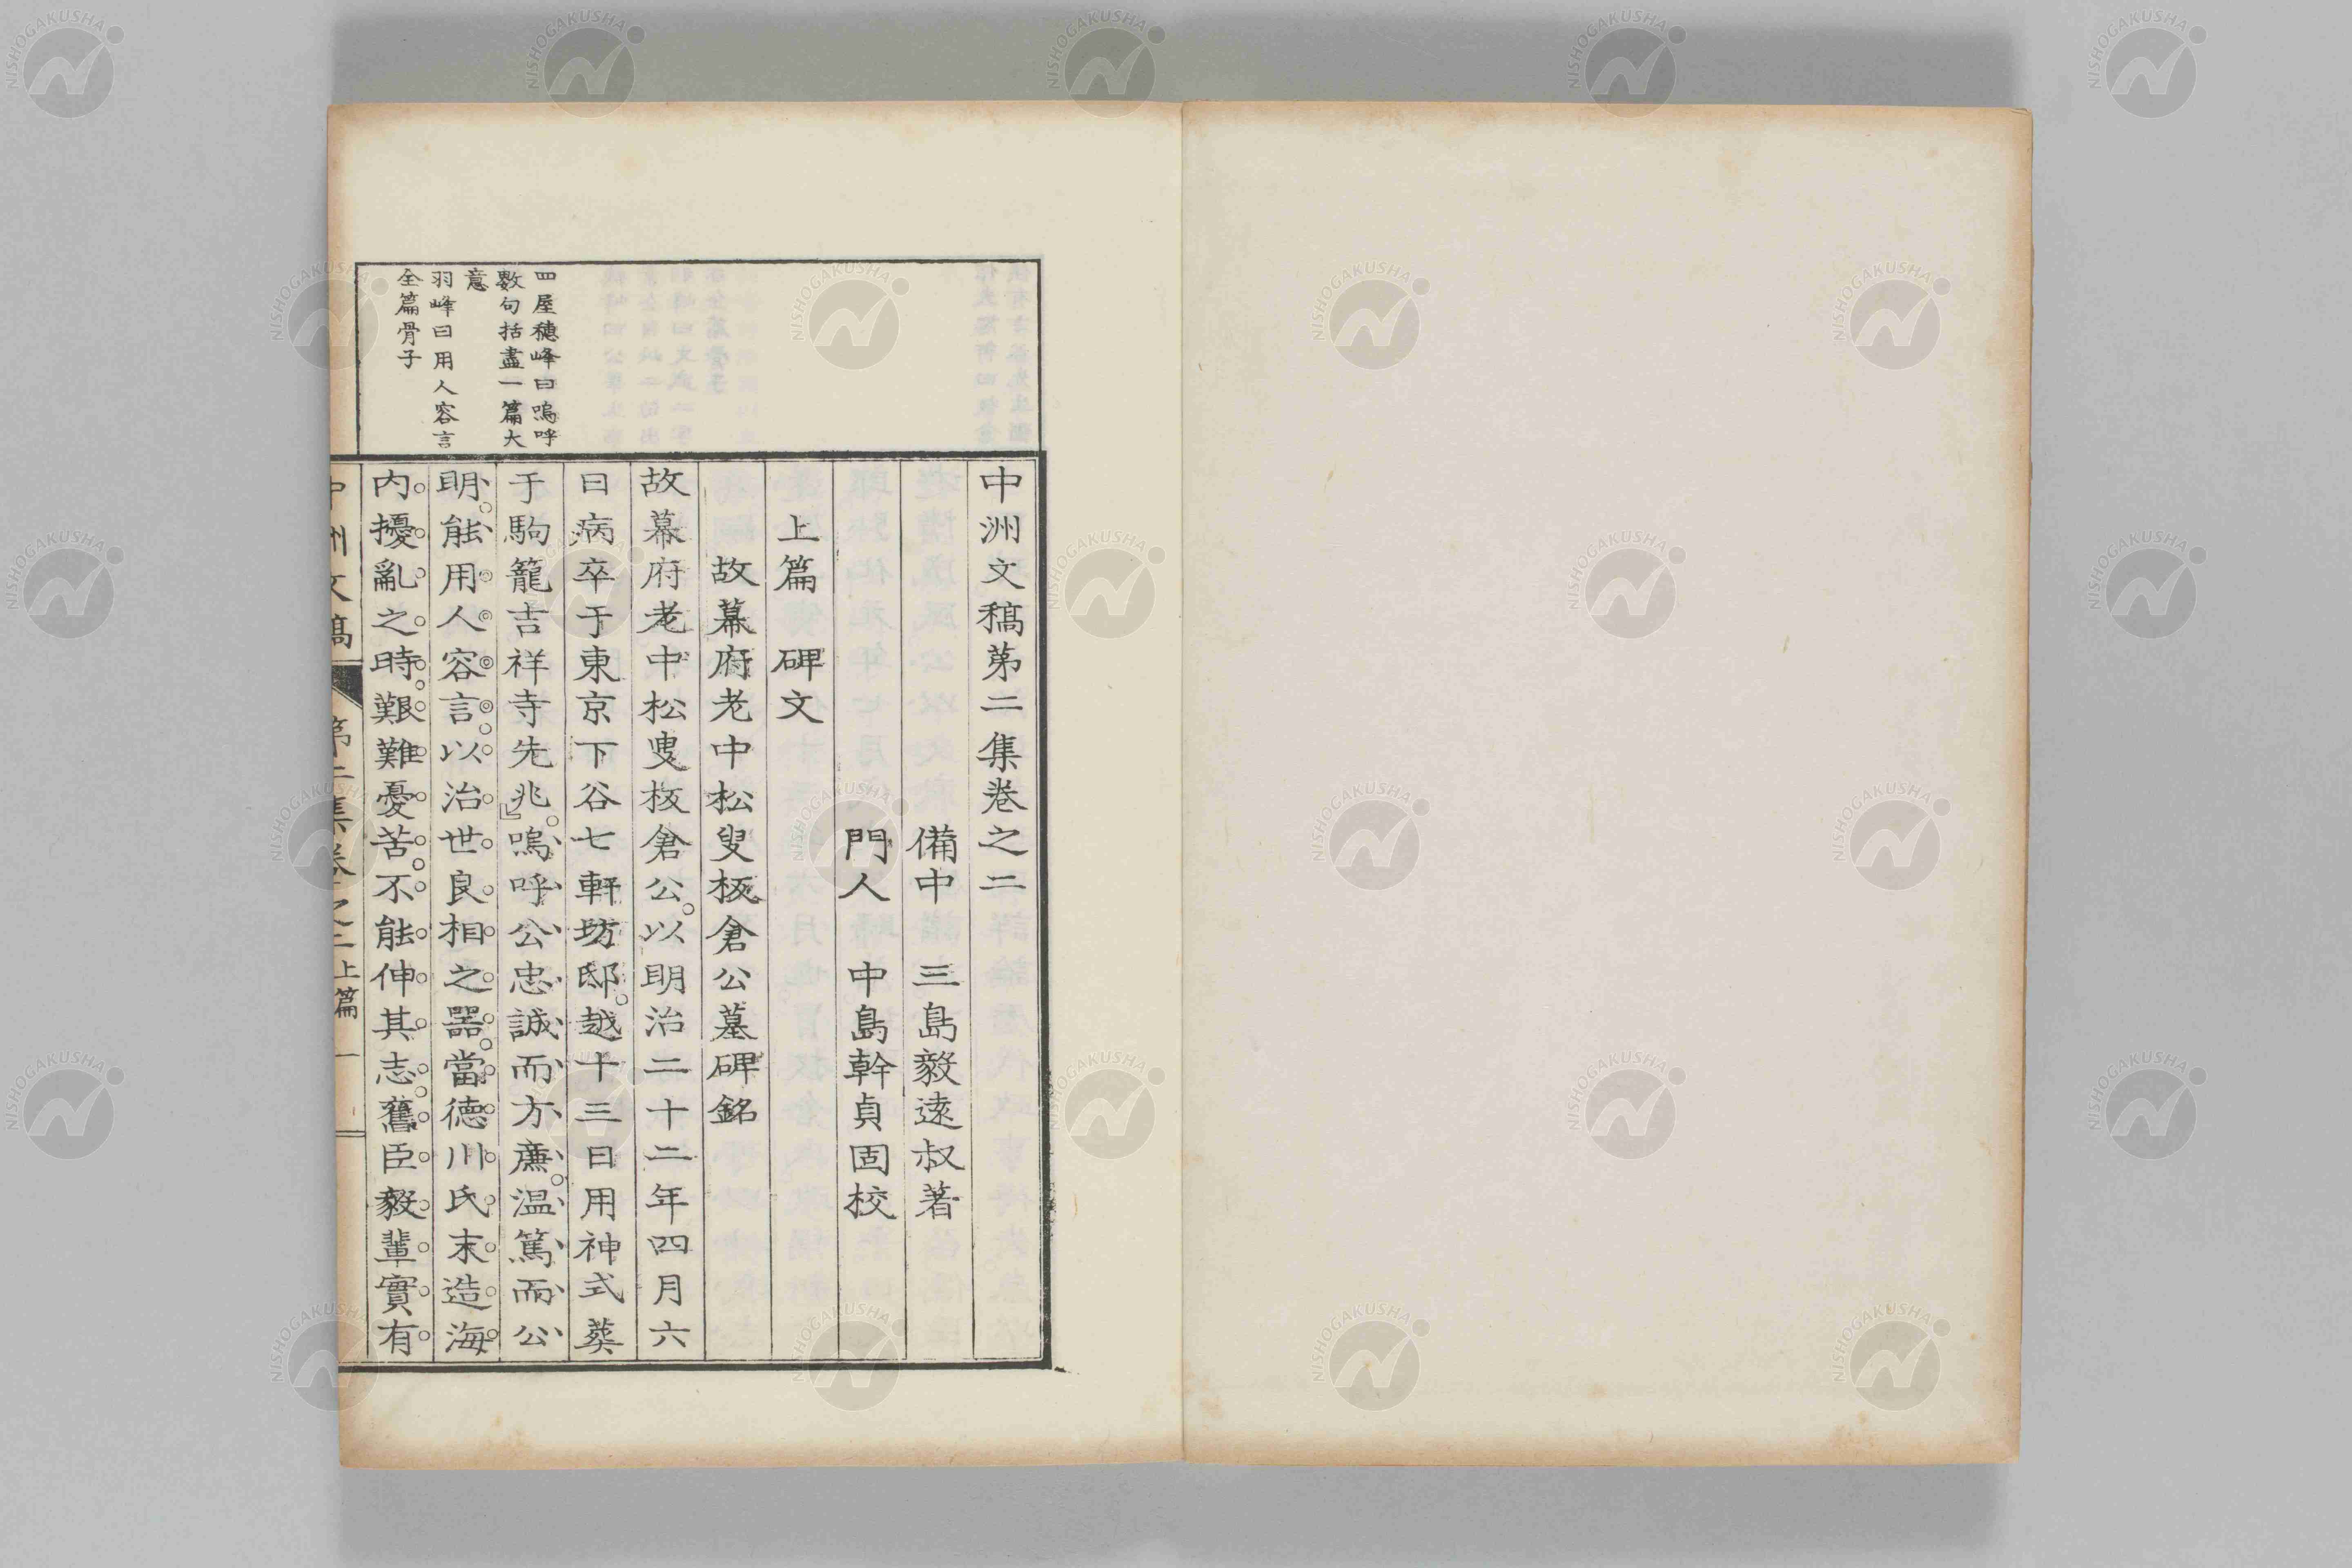 四屋穗峰曰嗚呼
數句括盡一篇大
意
羽峰曰用人容言
全篇骨子
中洲文稿第二集卷之二
備中 三島毅遠叔著
門人 中島幹貞固校
上篇 碑文
故幕府老中松叟板倉公墓碑銘
故幕府老中松叟板倉公以明治二十二年四月六
日病卒于東京下谷七軒坊邸越十三日用神式葬
于駒籠吉祥寺先兆嗚呼公忠誠而方廉温篤而公
明能用人容言以治世良相之器當德川氏末造海
内擾亂之時艱難憂苦不能伸其志舊臣毅輩實有
中洲文稿 第二集卷之二 上篇 一
NISHOGAKUSHA